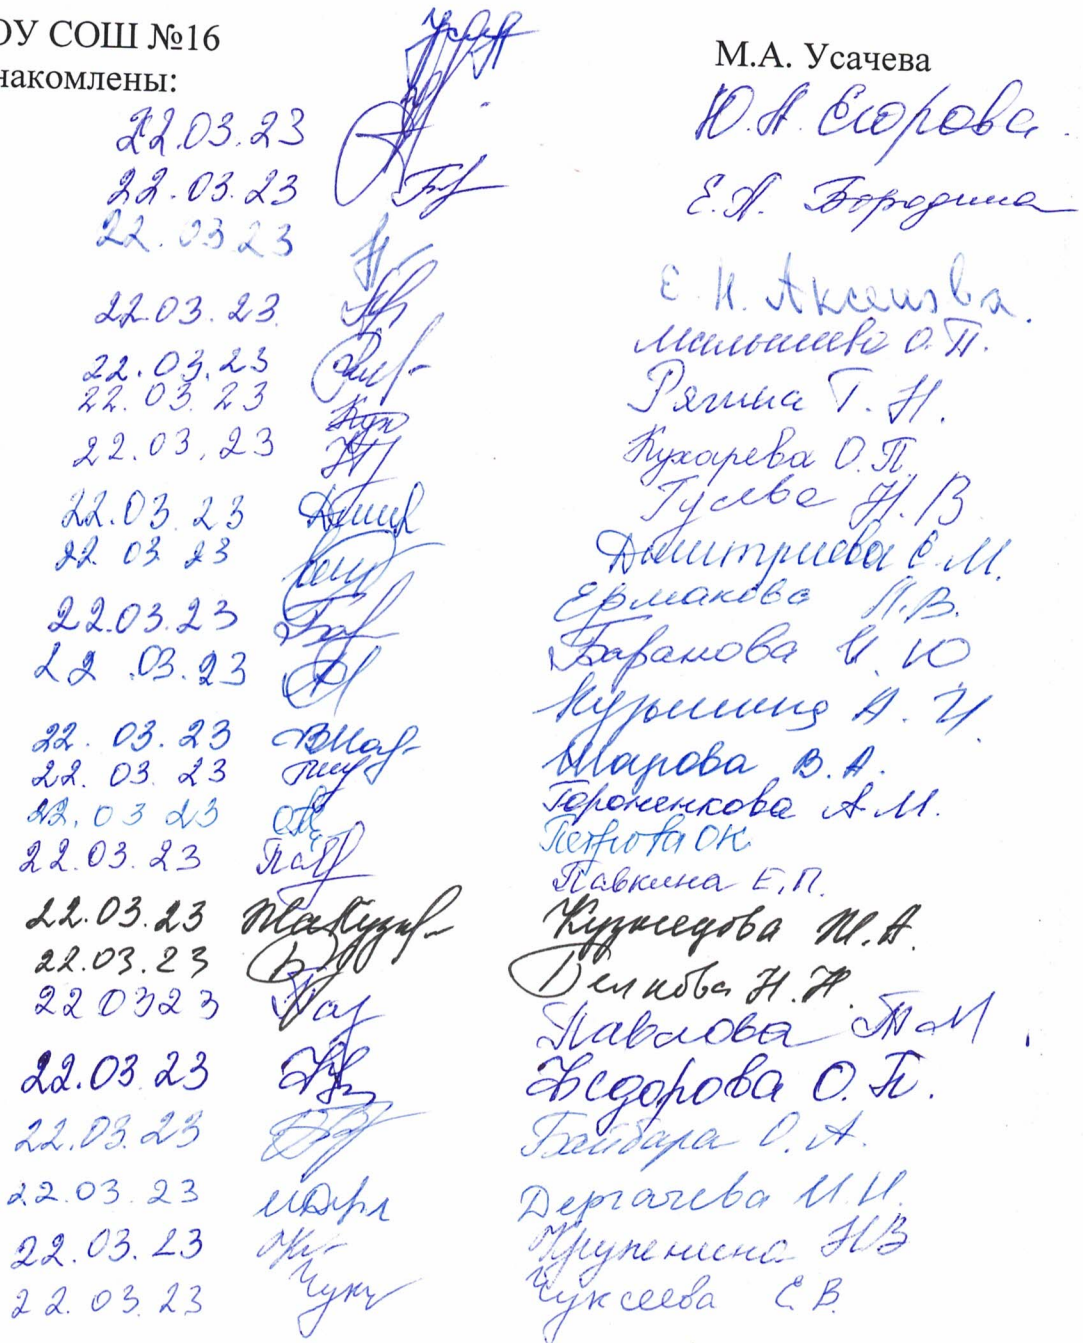 ОУ СОШ №16 М.А. Усачева
накомлены:
22.03.23 Ю.А. Егорова
22.03.23 Е.А. Бородина
22.03 23 Е.Н. Аксенова.
22.03.23 Малышева О.П.
22.03.23 Рягина Т.Н.
22.03.23 Кухарева О.П
22.03.23 Гусева Н.В
22.03.23 Дмитриева Е.М.
22 03 23 Ермакова Н.В.
22.03.23 Баранова И.Ю
22.03.23 Кузьмина А.И.
22.03.23 Шарова В.А.
22.03.23 Гороненкова А.М.
22.03 23 Петрова ОК
22.03.23 Павкина Е.П.
22.03.23 Кузнецова Ж.А.
22.03.23 Белкова Н.Н.
22 03 23 Павлова Т М
22.03.23 Федорова О.П.
22.03.23 Байбара О.А.
22.03.23 Дергачева И.И.
22.03.23 Крупенина НВ
22.03.23 Чуксеева Е.В.